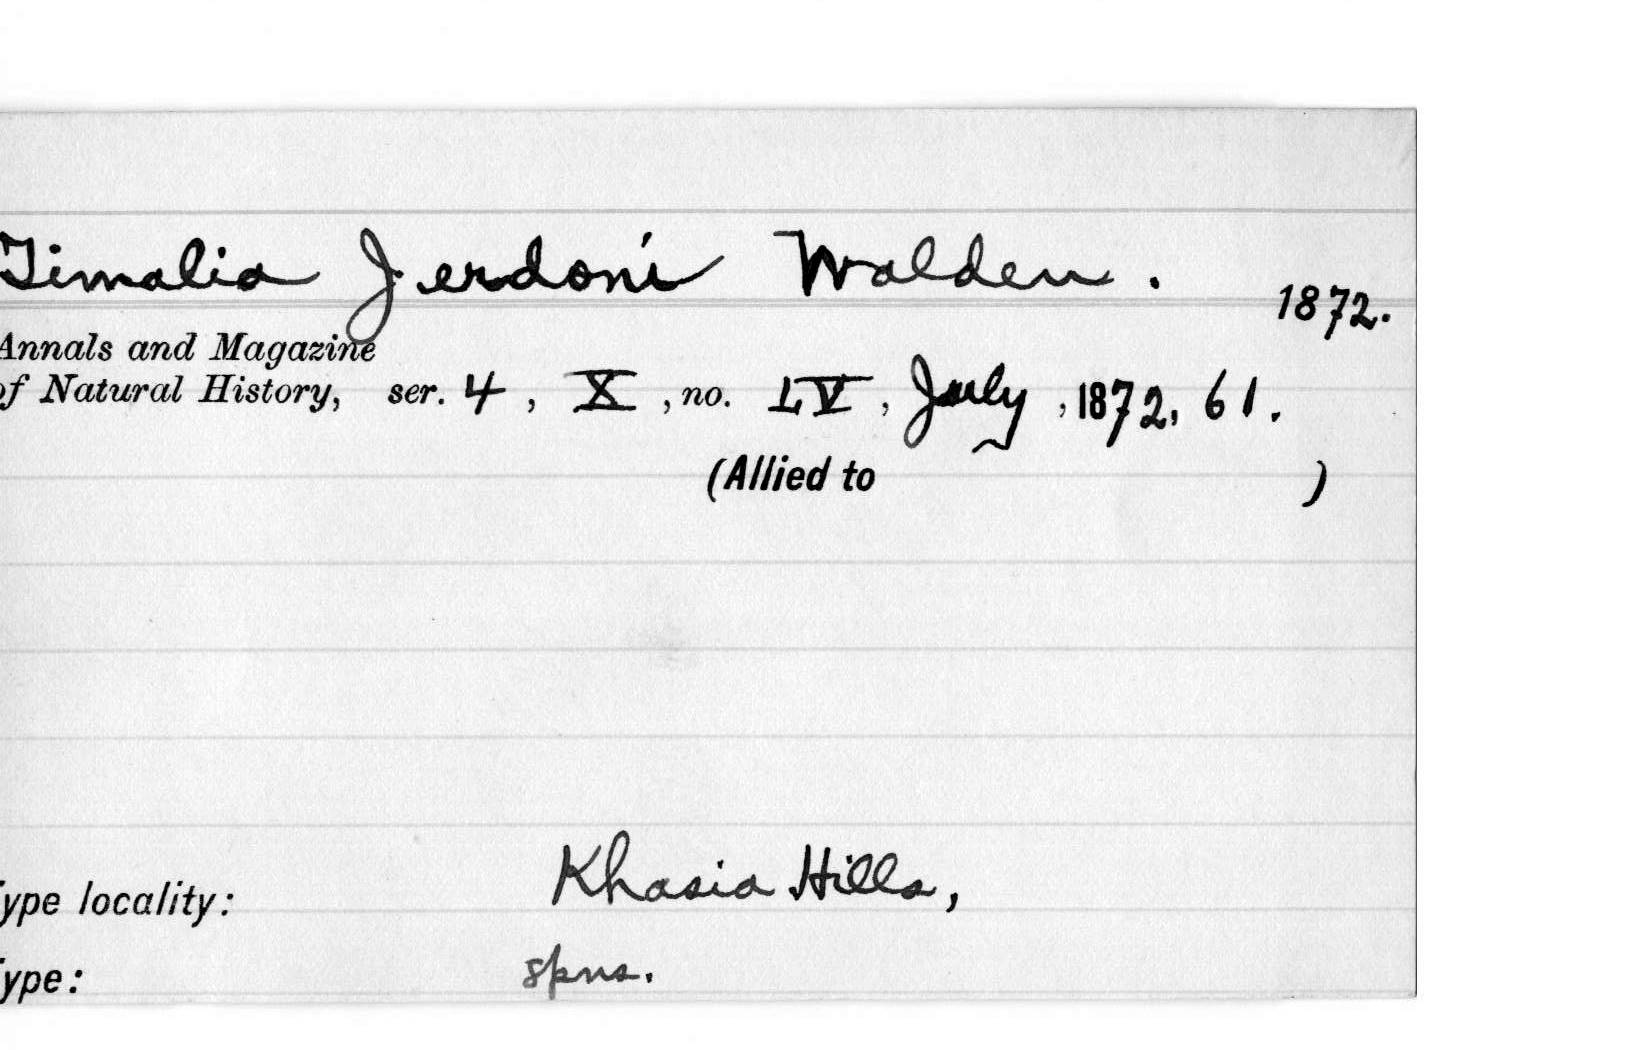 Timalia Jerdoni Walden.
1872.
Annals and Magazine
of Natural History, ser. 4, X, no. LV, July, 1872, 61.
(Allied to )
Type locality: Khasia Hills,
Type: spns.